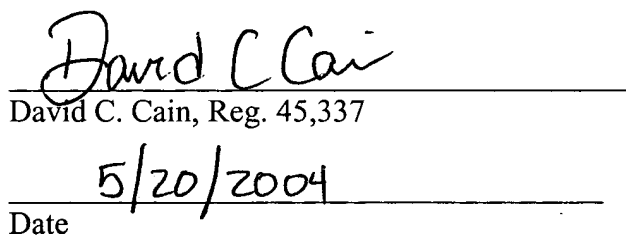 David C Cain
David C. Cain, Reg. 45,337
5/20/2004
Date